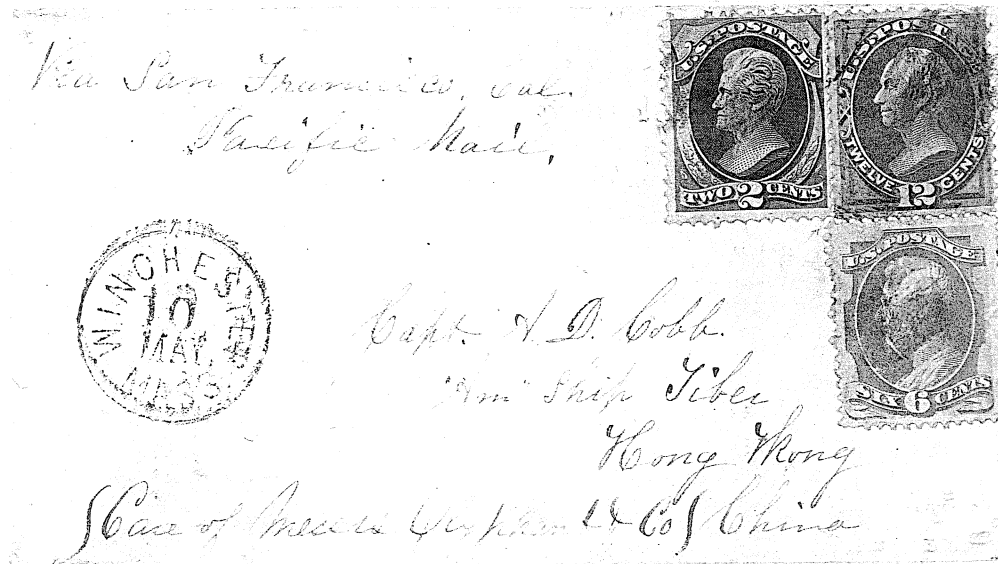 Via San Francisco, Cal.
Pacific Mail.
U.S. POSTAGE
TWO 2 CENTS
U.S. POSTAGE
TWELVE 12 CENTS
U.S. POSTAGE
SIX 6 CENTS
WINCHESTER
10
MAY.
MASS.
Capt. D. Cobb.
"Am" Ship Tiber
Hong Kong
(Care of Messrs & Co) China